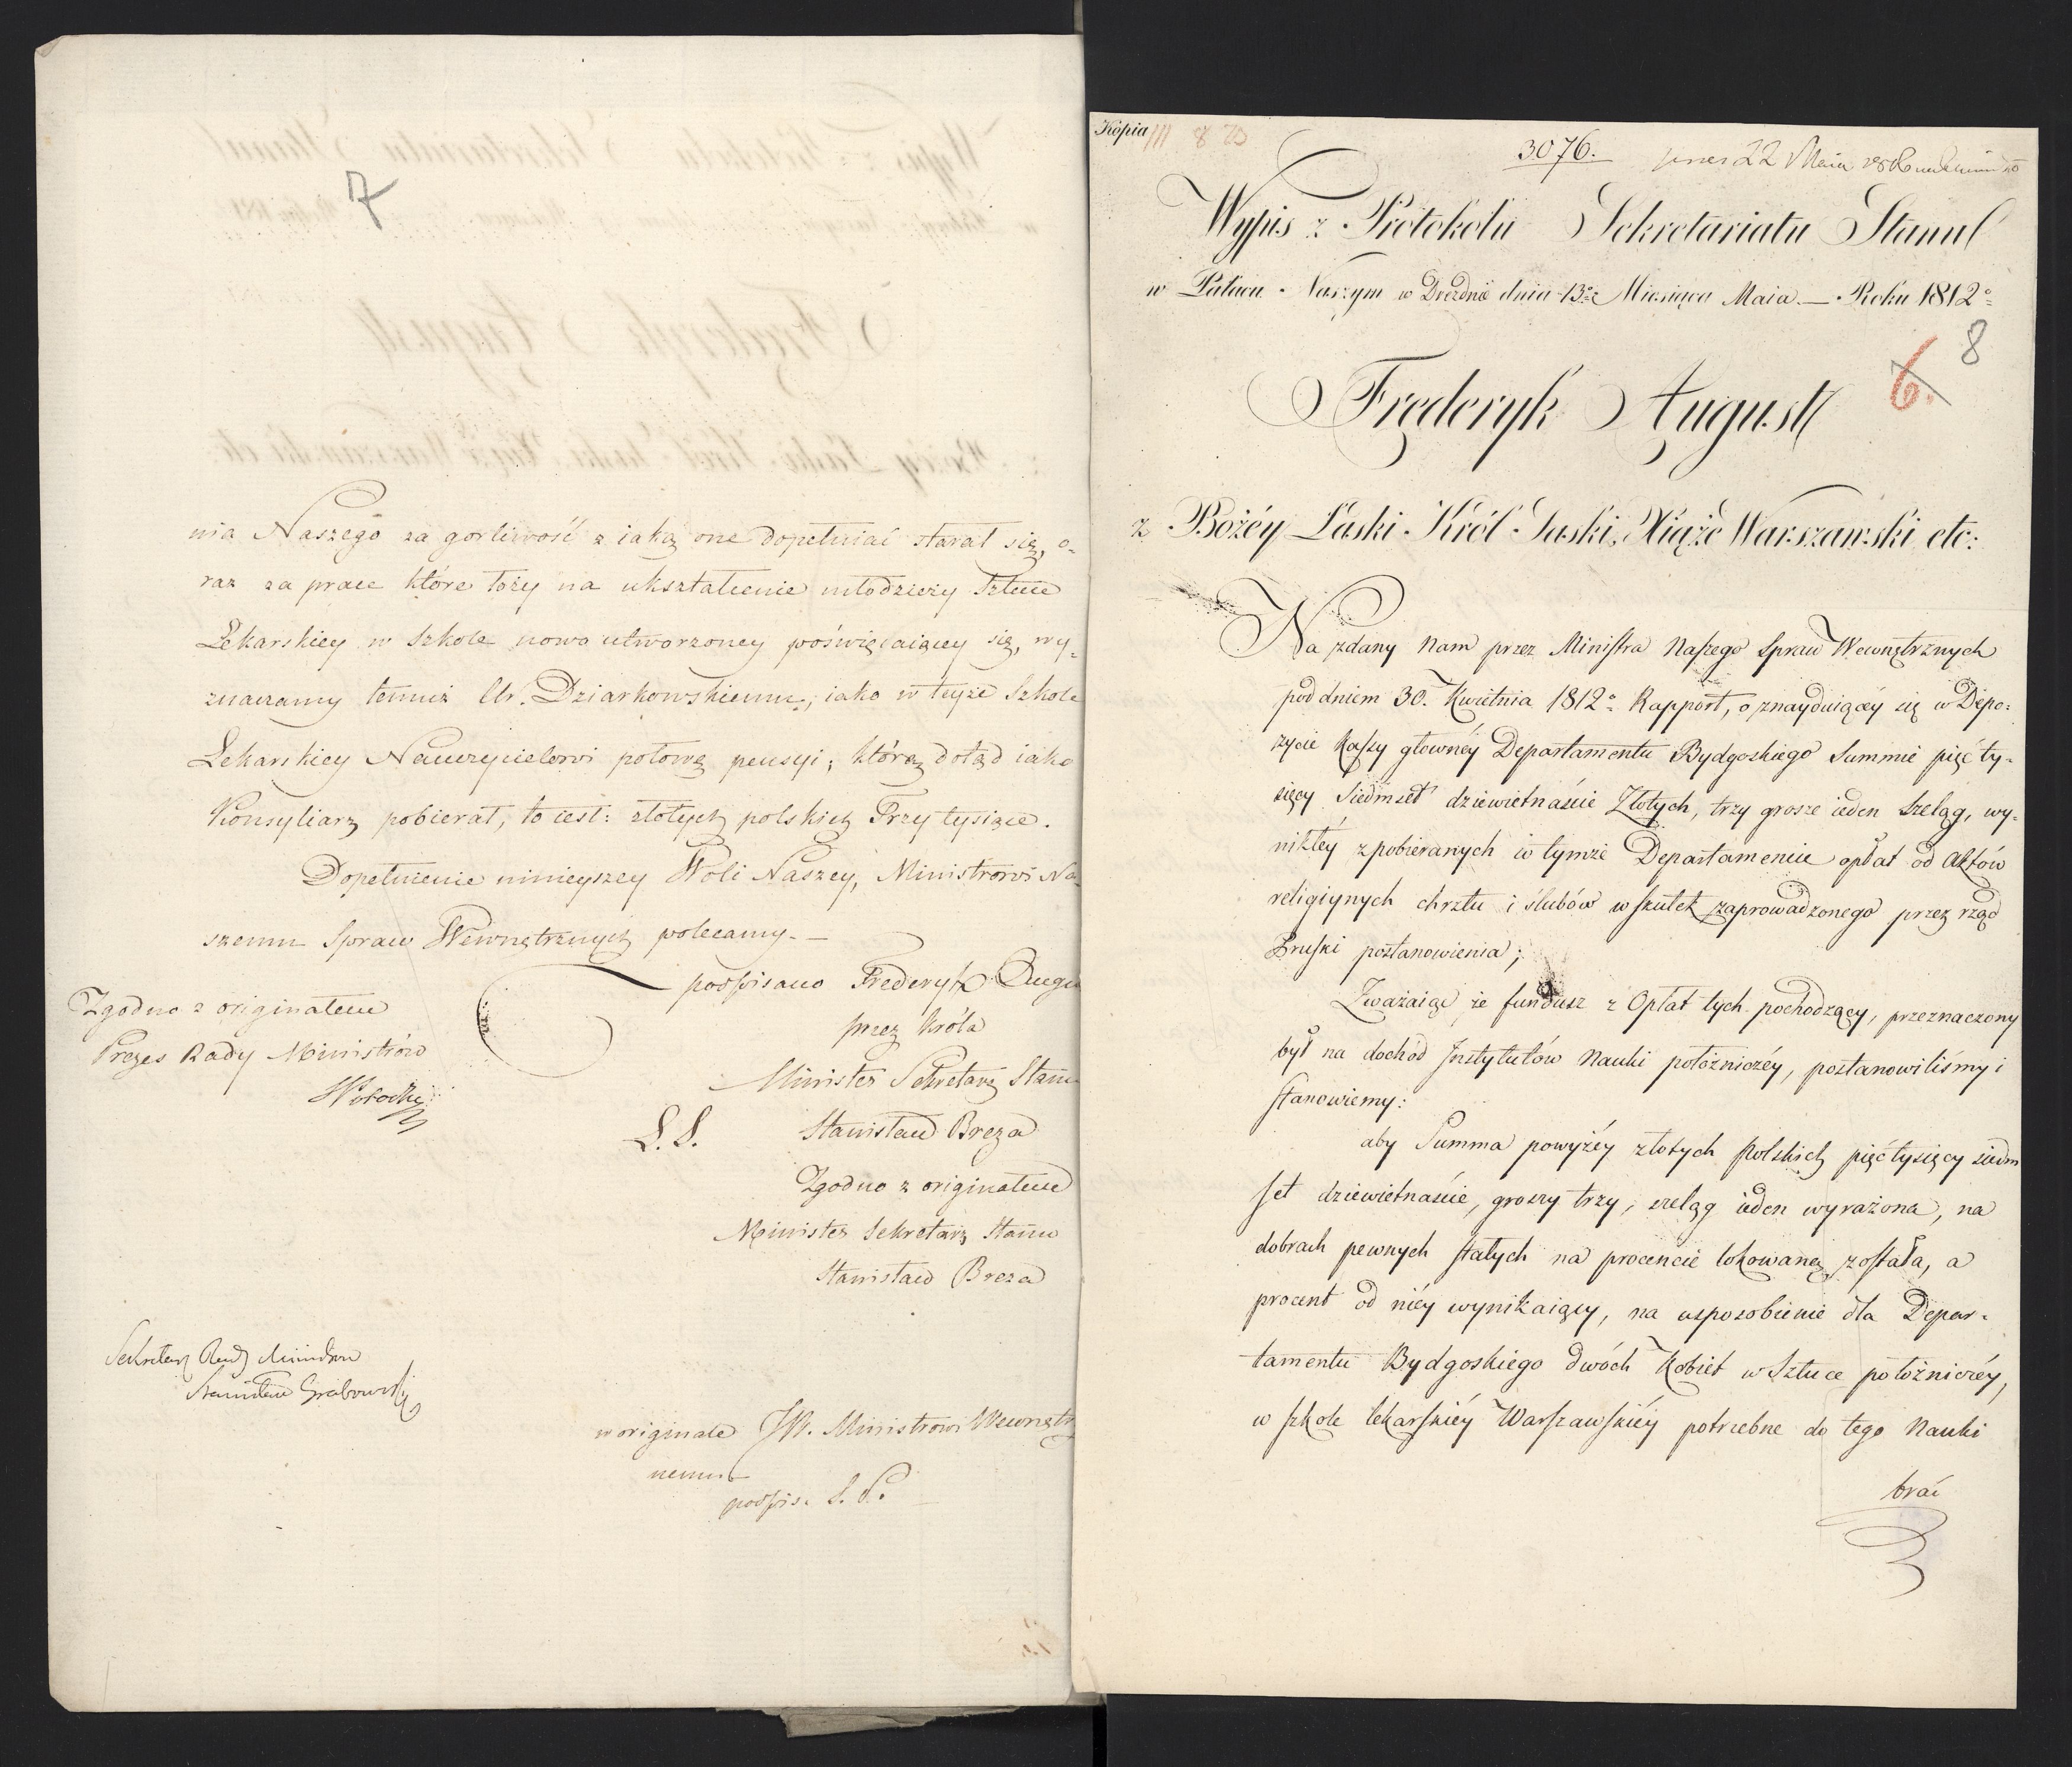 7
nia Naszego za gorliwość z iaką one dopełniać starał się, o-
raz za prace które łoży na ukształcenie młodzieży Sztuce
Lekarskiey w Szkole nowo utworzoney poświęcaiącey się, wy-
znaczamy temuż Ur. Dziarkowskiemu, iako w teyże Szkole
Lekarskiey Nauczycielowi połowę pensyi, którą dotąd iako
Konsyliarz pobierał, to iest: złotych polskich Trzy tysiące.
Dopełnienie ninieyszey Woli Naszey, Ministrowi Na-
szemu Spraw Wewnętrznych polecamy. —
podpisano Frederyk Augu
przez Króla
Minister Sekretarz Stanu
L.S. Stanisław Breza
Zgodno z originałem
Minister Sekretarz Stanu
Stanisław Breza
Zgodno z originałem
Prezes Rady Ministrów
Sekretarz Rady Ministrów
Stanisław Grabowski
w originale JW. Ministrowi Wewnętrz
nemu
podpis. S. P.
Kopia
3076.
22 Maia
Wypis z Protokołu Sekretariatu Stanu
w Pałacu Naszym w Dreźnie dnia 13o Miesiąca Maia — Roku 1812o
6. 8
Frederyk August
z Bożéy Łaski Król Saski, Xiąże Warszawski etc:
Na zdany Nam przez Ministra Naszego Spraw Wewnętrznych
pod dniem 30. Kwietnia 1812o Rapport, o znayduiącéy się w Depo-
zycie Kassy głownéy Departamentu Bydgoskiego Summie pięć ty-
sięcy siedmset dziewietnaście Złotych, trzy grosze ieden Szeląg, wy-
nikłéy z pobieranych w tymże Departamencie opłat od Aktów
religiynych chrztu i ślubów w skutek zaprowadzonego przez rząd
Pruski postanowienia;
Zważaiąc że fundusz z Opłat tych pochodzący, przeznaczony
był na dochód Instytutów Nauki położniczéy, postanowiliśmy i
stanowiemy:
aby Summa powyżéy złotych Polskich pięć tysięcy siedm
set dziewietnaście, groszy trzy, szeląg ieden wyrażona, na
dobrach pewnych stałych na procencie lokowaną została, a
procent od niéy wynikaiący, na usposobienie dla Depar-
tamentu Bydgoskiego dwóch Kobiet w Sztuce położniczéy,
w szkole lekarskiéy Warszawskiéy potrzebne do tego Nauki
brać